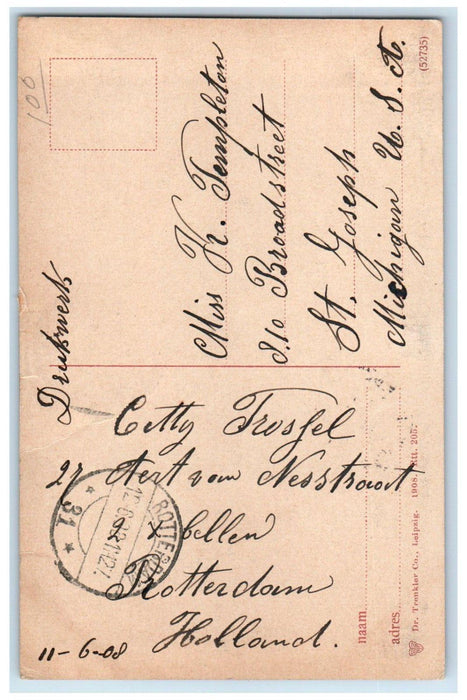 100
Drukwerk
Miss K. Templeton
Broadstreet
St. Joseph
Michigan U. S. A.
(52735)
Cetty Trossel
27 Aert van Nesstraat
2 x bellen
Rotterdam
Holland.
11-6-08
ROTTERDAM
* 31 *
naam
adres
Dr. Trenkler Co., Leipzig. 1908. Rtt. 205.